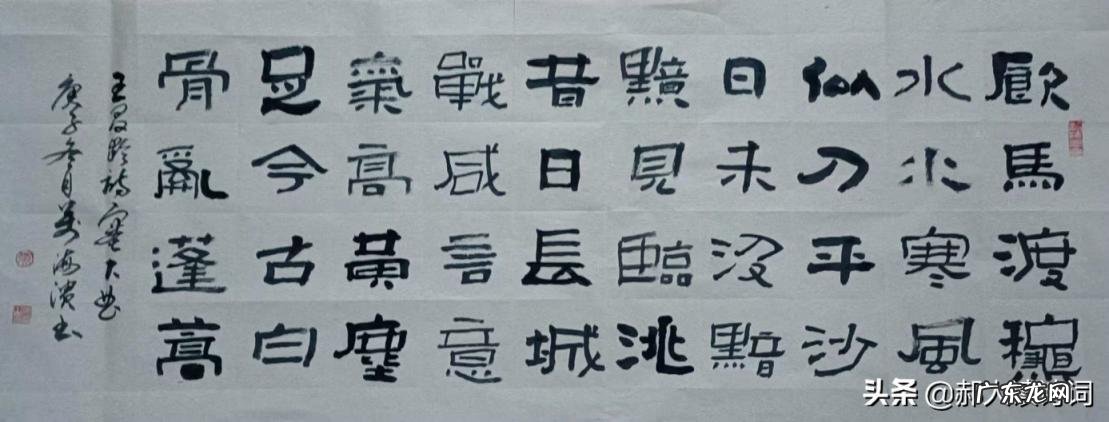 飲馬渡穐
水水寒風
似刀平沙
日未沒黯
黯見臨洮
昔日長城
戰咸言意
氣高黃塵
足今古白
骨亂蓬蒿
王昌龄詩塞下曲
庚子冬月海濱书
头条 @郝诗词
广东龙网